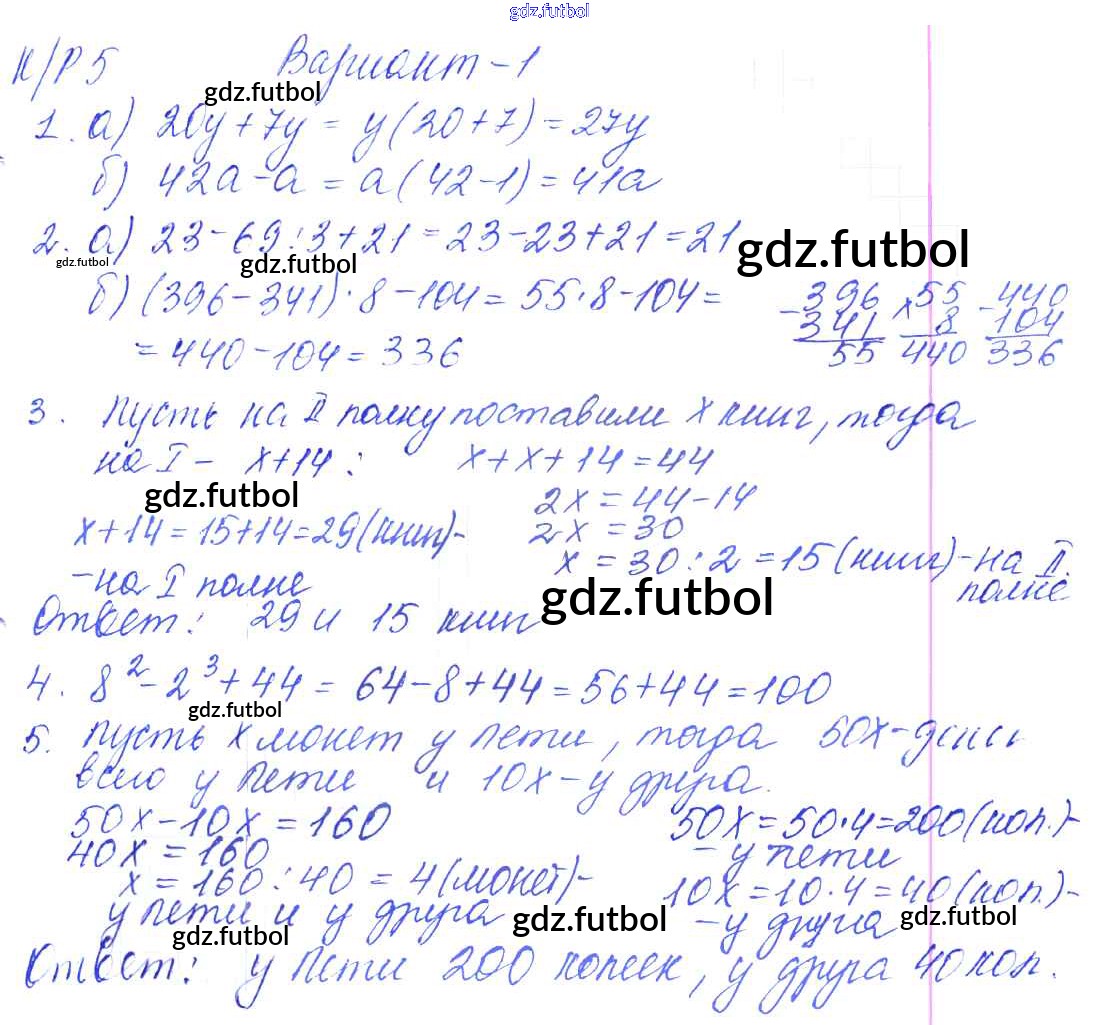 gdz.futbol
К/Р 5 Вариант-1
gdz.futbol
1. а) 20y+7y = y(20+7) = 27y
б) 42a-a = a(42-1) = 41a
2. а) 23-69:3+21 = 23-23+21 = 21
gdz.futbol
gdz.futbol gdz.futbol
б) (396-341)·8-104 = 55·8-104 =
= 440-104 = 336
-396 ×55 -440
341 8 104
55 440 336
3. Пусть на II полку поставили x книг, тогда
на I - x+14: x+x+14=44
gdz.futbol
2x = 44-14
x+14 = 15+14=29(книг)- 2x = 30
x = 30:2 =15(книг)-на II.
-на I полке полке
gdz.futbol
Ответ: 29 и 15 книг
4. 8²-2³+44 = 64-8+44=56+44=100
gdz.futbol
5. Пусть x монет у Пети, тогда 50x-денег
всего у Пети и 10x-у друга.
50x-10x =160 50x=50·4=200(коп.)-
40x =160 -у Пети
x = 160:40 = 4(монет)- 10x=10·4=40(коп.)-
у Пети и у друга -у друга
gdz.futbol gdz.futbol gdz.futbol
Ответ: у Пети 200 копеек, у друга 40 коп.